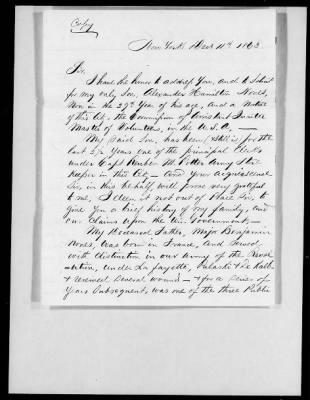 Copy
New York Dec 11th 1863.
Sir,
I have the honor to address You, and to solicit
for my only Son, Alexander Hamilton Nones,
Now in the 29th Year of his age, and a Native
of this City, the Commission of Assistant Quarter
Master of Volunteers, in the U.S.A. —
My said Son, has been (& still is) for the
last 2½ Years one of the principal Clerks
under Capt Reuben M. Potter Army Store
Keeper in this City — And Your acquiescence
Sir, in this behalf, will prove very grateful
to me, I deem it not out of Place Sir, to
give You a brief history of my family, and
our Claims upon the Gen. Government —
My Deceased Father, Major Benjamin
Nones, was born in France, and Served
with distinction in our Army of the Revol
-ution, under La Fayette, Pulaski & De Kalb
& received Several wounds — & for a Series of
Years Subsequent, was one of the three Public